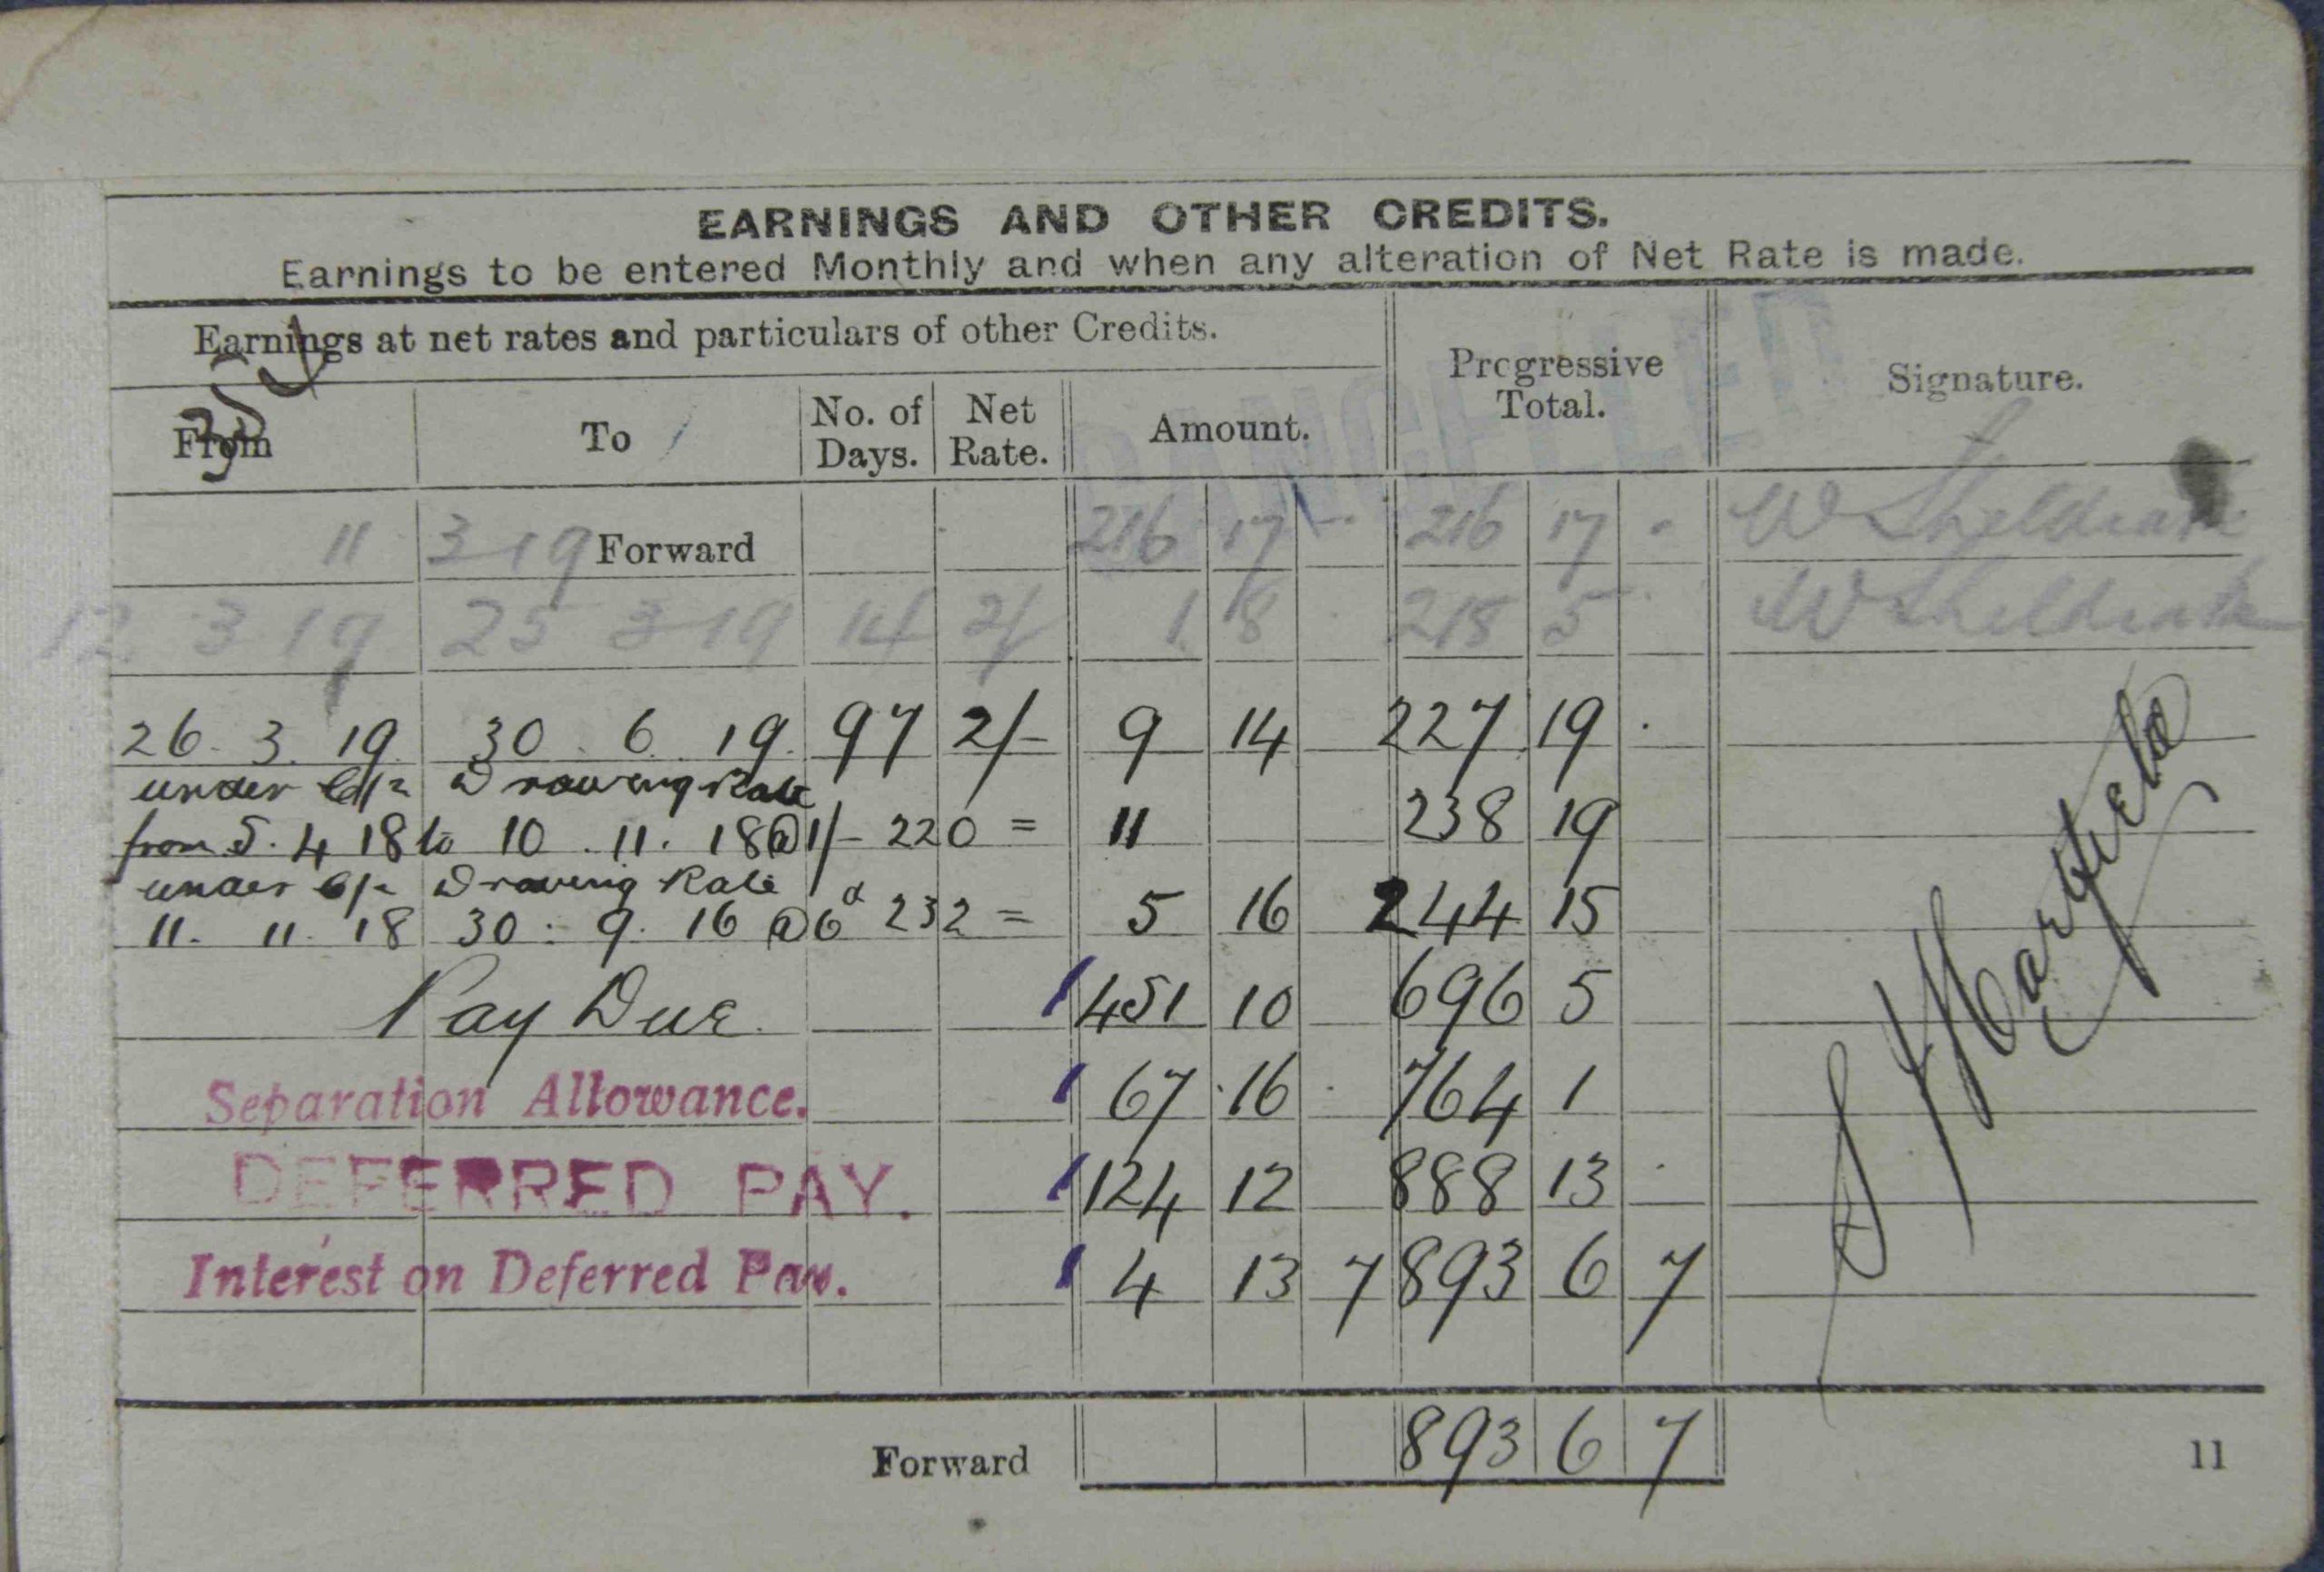 EARNINGS AND OTHER CREDITS.
Earnings to be entered Monthly and when any alteration of Net Rate is made.
Earnings at net rates and particulars of other Credits.
Progressive Total.
Signature.
From To No. of Days. Net Rate. Amount.
CANCELLED
11 3 19 Forward 216 17 - 216 17 . W Sheldrake
12 3 19 25 3 19 14 2/ 1 8 . 218 5 . W Sheldrake
26 . 3 . 19 30 . 6 . 19 . 97 2/- 9 14 227 19 .
under Drawing Rate
from 5 . 4 18 to 10 . 11 . 18 @ 1/- 220 = 11 238 19
under Drawing Rate
11 . 11 . 18 30 : 9 . 16 @ 6d 232 = 5 16 244 15
Pay Due . 451 10 696 5
Separation Allowance. 67 . 16 . 764 1
DEFERRED PAY. 124 12 888 13 .
Interest on Deferred Pay. 4 13 7 893 6 7
Forward 893 6 7
11